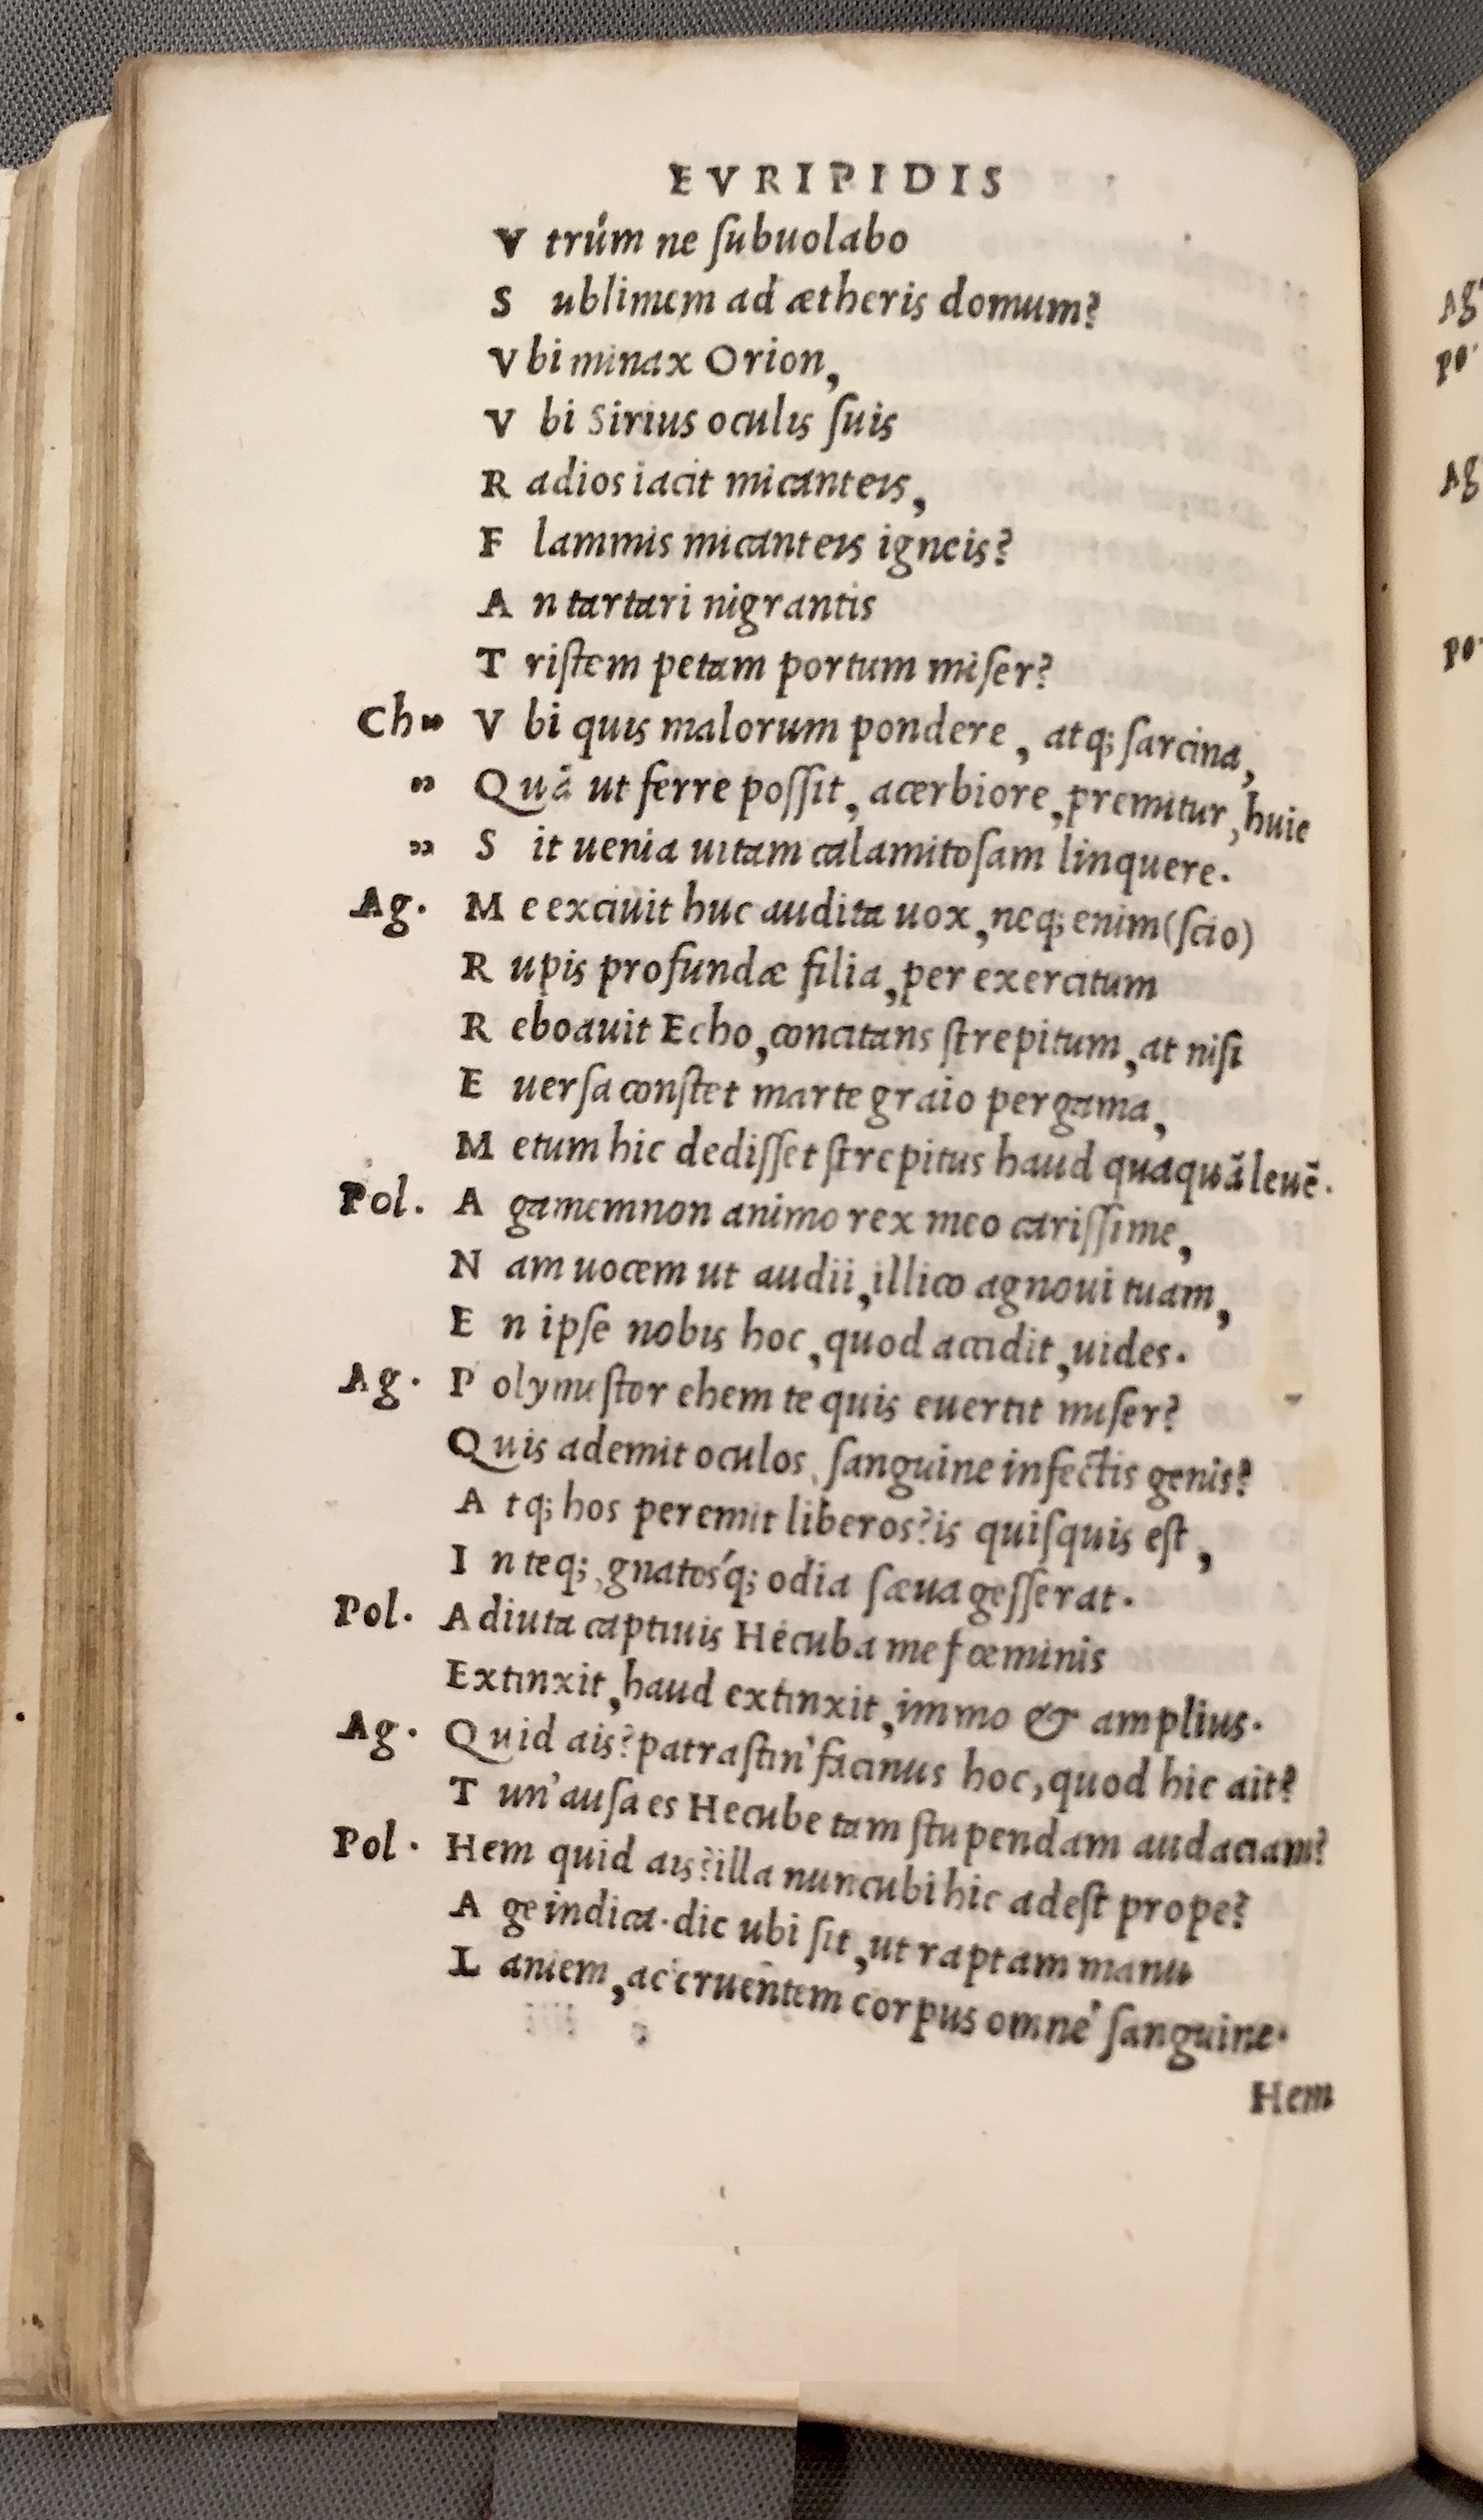 EVRIPIDIS
V trúm ne ſubuolabo
S ublimem ad ætheris domum?
V bi minax Orion,
V bi Sirius oculis ſuis
R adios iacit micanteis,
F lammis micanteis igneis?
A n tartari nigrantis
T riſtem petam portum miſer?
Ch„ V bi quis malorum pondere, atq; ſarcina,
„ Quã ut ferre poſſit, acerbiore, premitur, huic
„ S it uenia uitam calamitoſam linquere.
Ag. M e exciuit huc audita uox, neq; enim (ſcio)
R upis profundæ filia, per exercitum
R eboauit Echo, concitans ſtrepitum, at niſi
E uerſa conſtet marte graio pergama,
M etum hic dediſſet ſtrepitus haud quaquã leuē.
Pol. A gamemnon animo rex meo cariſſime,
N am uocem ut audii, illico agnoui tuam,
E n ipſe nobis hoc, quod accidit, uides.
Ag. P olymeſtor ehem te quis euertit miſer?
Quis ademit oculos, ſanguine infectis genis?
A tq; hos peremit liberos? is quiſquis eſt,
I n teq;, gnatosq́; odia ſæua geſſerat.
Pol. Adiuta captiuis Hecuba me fœminis
Extinxit, haud extinxit, immo & amplius.
Ag. Quid ais? patraſtin' facinus hoc, quod hic ait?
T un' auſa es Hecube tam ſtupendam audaciam?
Pol. Hem quid ais? illa nuncubi hic adeſt prope?
A ge indica. dic ubi ſit, ut raptam manu
L aniem, ac cruentem corpus omne ſanguine.
Hem
Ag
Po.
Ag
Po.